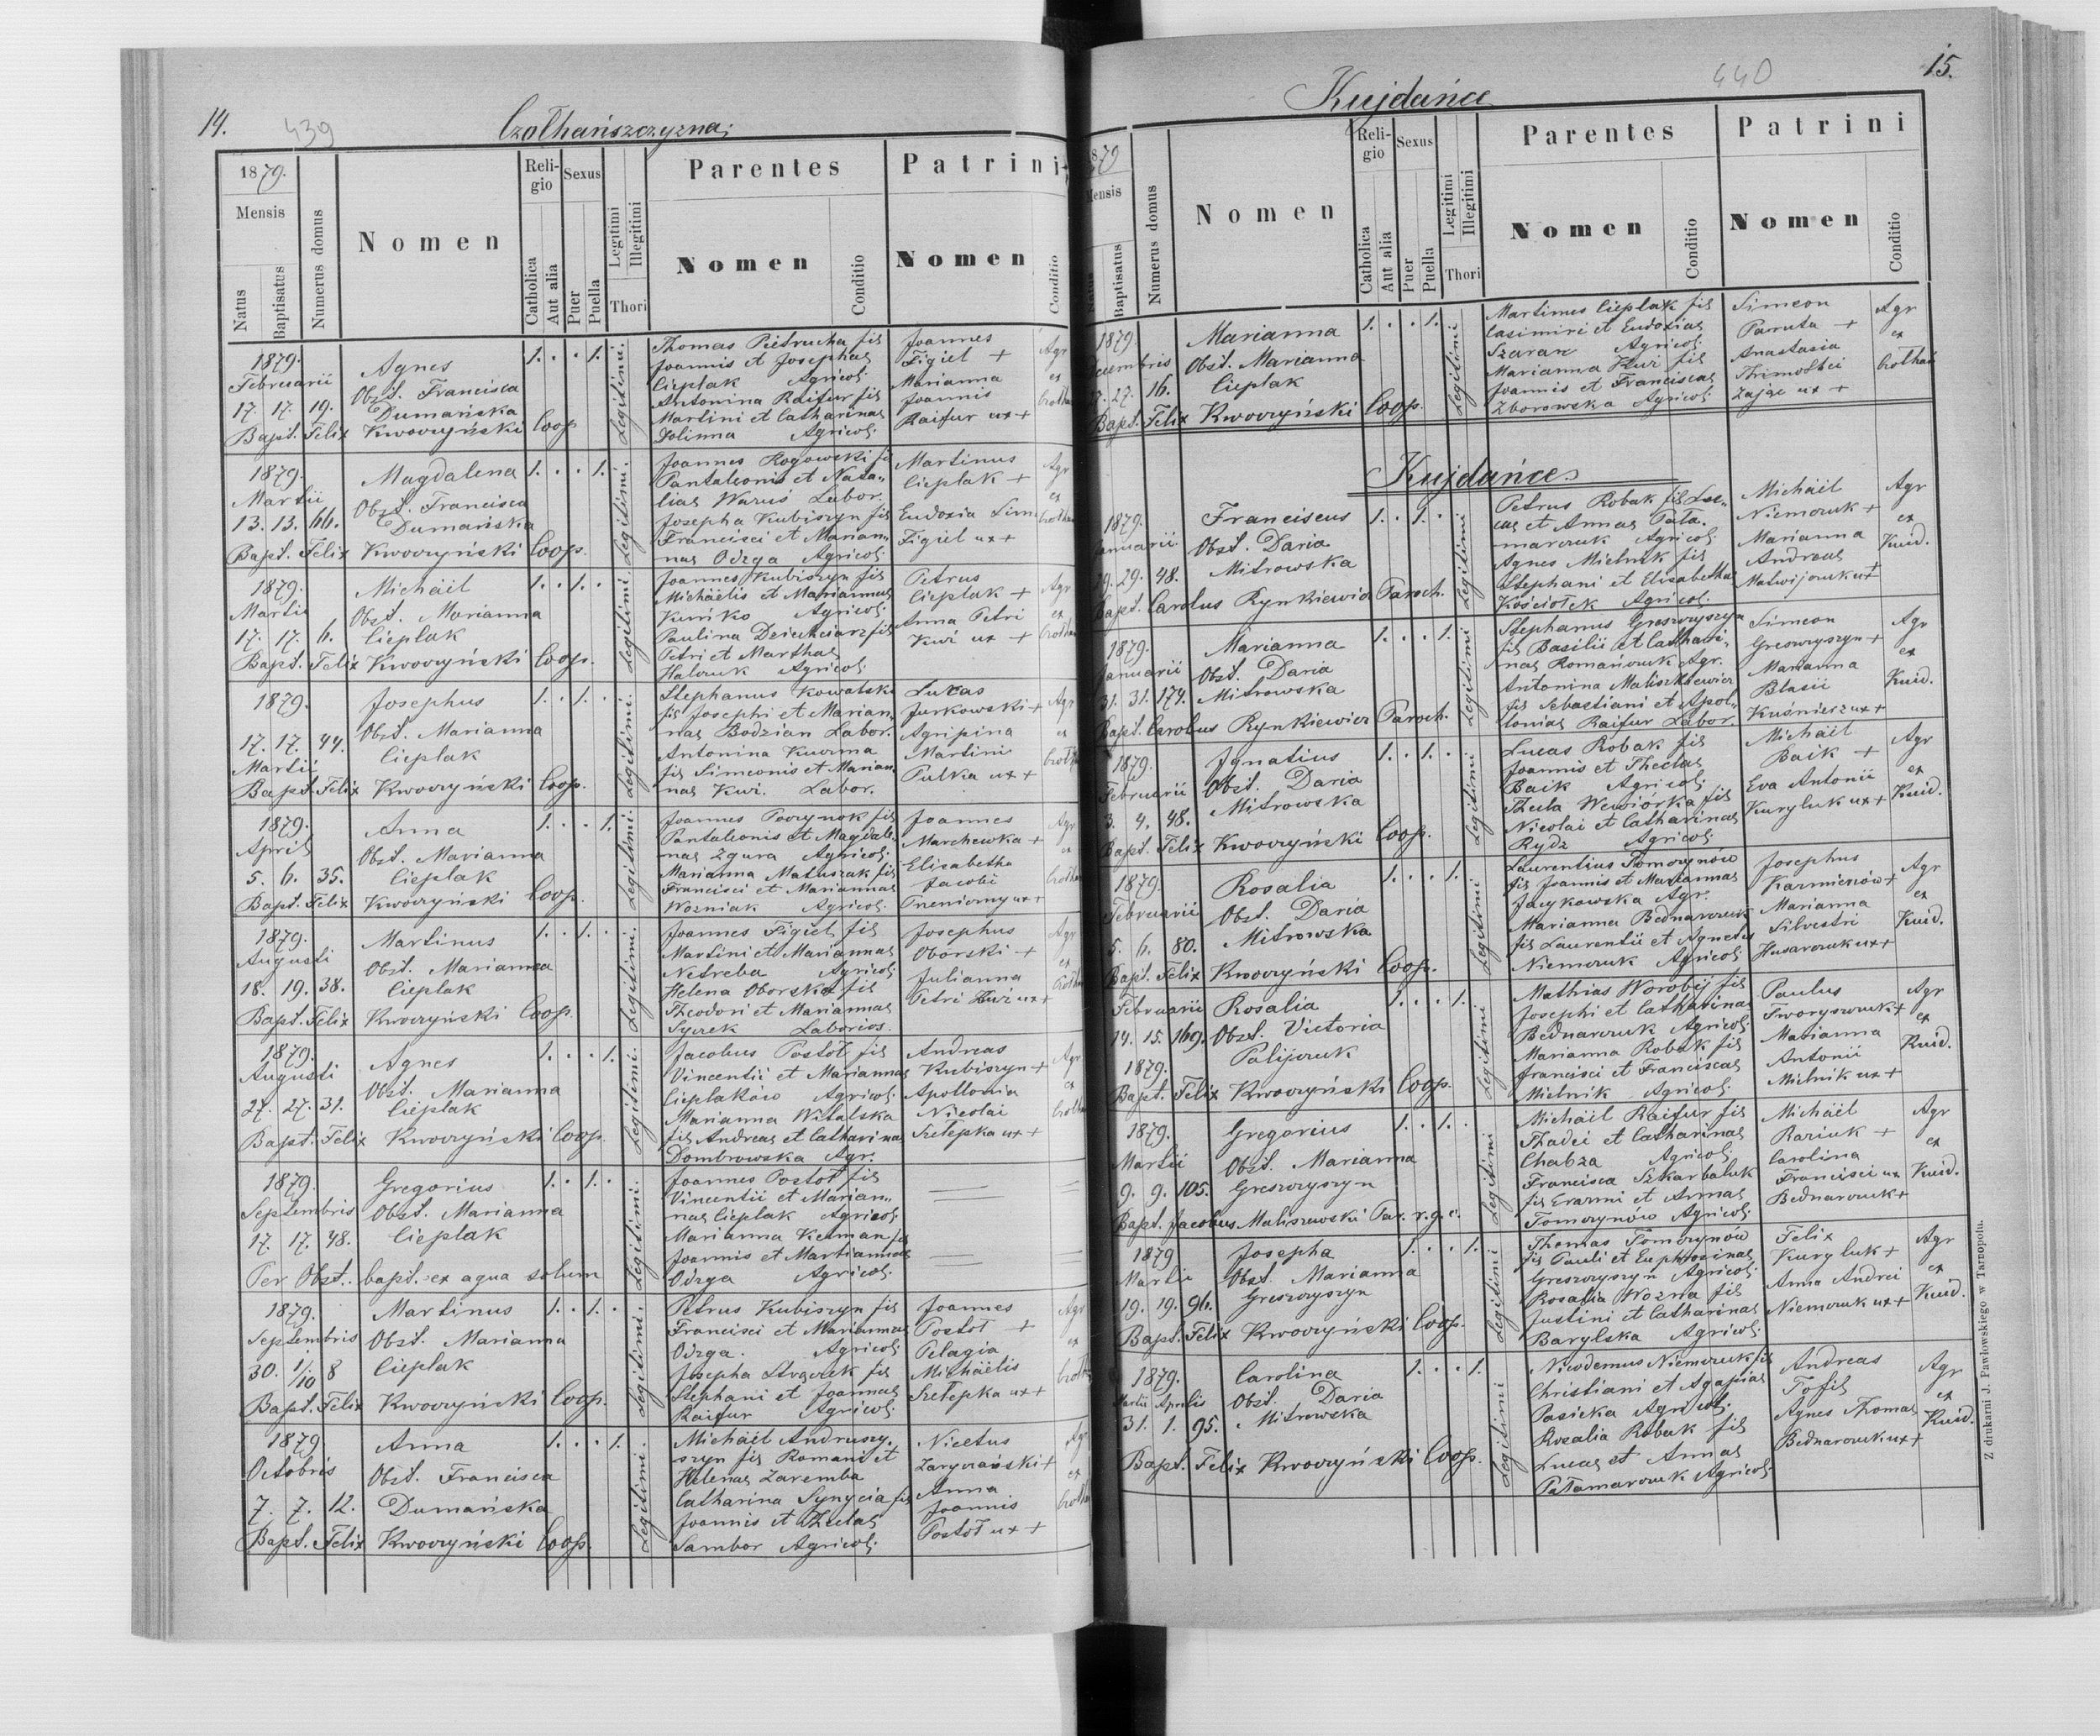 14.
439
Czołhańszczyzna;
1879.
Mensis
Natus
Baptisatus
Numerus domus
Nomen
Religio
Catholica
Aut alia
Sexus
Puer
Puella
Legitimi
Illegitimi
Thori
Parentes
Nomen
Conditio
Patrini
Nomen
Conditio
1879.
Februarii
17. 17. 19.
Agnes
Obst. Francisca
Dumańska
Bapt. Felix Kwoczyński Coop
1. . . 1.
Legitimi.
Thomas Pietrucha fil
Joannis et Josephae
Cieplak Agricol.
Antonina Raifur fil
Martini et Catharinae
Agricol.
Joannes
Figiel +
Marianna
Joannis
Raifur ux +
Agr
ex
1879.
Martii
13. 13. 66.
Magdalena
Obst. Francisca
Dumańska
Bapt. Felix Kwoczyński Coop.
1. . . 1.
Legitimi.
Joannes Rogowski fil
Pantaleonis et Nata-
liae Waruś Labor.
Josepha Kubiszyn fil
Francisci et Marian-
nae Odzga Agricol.
Martinus
Cieplak +
Eudoxia
Figiel ux +
Agr
ex
1879.
Martii
17. 17. 6.
Michäil
Obst. Marianna
Cieplak
Bapt. Felix Kwoczyński Coop.
1. . 1. .
Legitimi.
Joannes Kubiszyn fil
Michäelis et Mariannae
Agricol.
Paulina fil
Petri et Marthae
Agricol.
Petrus
Cieplak +
Anna Petri
ux +
Agr
ex
1879.
17. 17. 44.
Martii
Josephus
Obst. Marianna
Cieplak
Bapt. Felix Kwoczyński Coop.
1. . 1. .
Legitimi.
Stephanus Kowalski
fil Josephi et Marian-
nae Bodzian Labor.
Antonina Kuczma
fil Simeonis et Marian-
nae Labor.
Lucas
Jurkowski +
Agripina
Martini
Pulka ux +
Agr
ex
1879.
Aprili
5. 6. 35.
Anna
Obst. Marianna
Cieplak
Bapt. Felix Kwoczyński Coop.
1. . . 1.
Legitimi.
Joannes fil
Pantaleonis et Magdale-
nae Zgura Agricol.
Marianna Matuszak fil
Francisci et Mariannae
Wozniak Agricol.
Joannes
Marchewka +
Elisabetha
Jacobi
ux +
Agr
ex
1879.
Augusti
18. 19. 38.
Martinus
Obst. Marianna
Cieplak
Bapt. Felix Kwoczyński Coop.
1. . 1. .
Legitimi.
Joannes Figiel fil
Martini et Mariannae
Netreba Agricol.
Helena Oborska fil
Theodori et Mariannae
Laborios.
Josephus
Oborski +
Julianna
Petri ux +
Agr
ex
1879.
Augusti
27. 27. 31.
Agnes
Obst. Marianna
Cieplak
Bapt. Felix Kwoczyński Coop.
1. . . 1.
Legitimi.
Jacobus Postoł fil
Vincentii et Mariannae
Cieplaków Agricol.
Marianna Witalska
fil Andreae et Catharinae
Dombrowska Agr.
Andreas
Kubiszyn +
Apollonia
Nicolai
Szelepka ux +
Agr
ex
1879.
Septembris
17. 17. 48.
Gregorius
Obst. Marianna
Cieplak
Per Obst. bapt. ex aqua solum
1. . 1. .
Legitimi.
Joannes Postoł fil
Vincentii et Marian-
nae Cieplak Agricol.
Marianna Kelman fil
Joannis et Mariannae
Odzga Agricol.
1879.
Septembris
30. 1/10 8
Martinus
Obst. Marianna
Cieplak
Bapt. Felix Kwoczyński Coop.
1. . 1. .
Legitimi.
Petrus Kubiszyn fil
Francisci et Mariannae
Odzga. Agricol.
Josepha fil
Stephani et Joannae
Raifur Agricol.
Joannes
Postoł +
Pelagia
Michäelis
Szelepka ux +
Agr
ex
1879.
Octobris
7. 7. 12.
Anna
Obst. Francisca
Dumańska
Bapt. Felix Kwoczyński Coop.
1. . . 1.
Legitimi.
Michäil Andruszy-
szyn fil Romani et
Helenae Zaremba
Catharina Synycia fil
Joannis et Theclae
Sambor Agricol.
Nicetus
Zaryczański +
Anna
Joannis
Postoł ux +
ex
15.
440
Kujdańce
1879
Mensis
Natus
Baptisatus
Numerus domus
Nomen
Religio
Catholica
Aut alia
Sexus
Puer
Puella
Legitimi
Illegitimi
Thori
Parentes
Nomen
Conditio
Patrini
Nomen
Conditio
1879.
27. 16.
Marianna
Obst. Marianna
Cieplak
Bapt. Felix Kwoczyński Coop.
1. . . 1.
Legitimi
Martinus Cieplak fil
Casimiri et Eudoxiae
Szaran Agricol.
Marianna fil
Joannis et Franciscae
Zborowska Agricol.
Simeon
Paruta +
Anastasia
Thimothei
Zając ux +
Agr
ex
Czołhań
Kujdańce.
1879.
Januarii
29. 29. 48.
Franciscus
Obst. Daria
Mitrowska
Bapt. Carolus Rynkiewicz Paroch.
1. . 1. .
Legitimi
Petrus Robak fil Lu-
cae et Annae Pała-
marczuk Agricol.
Agnes Mielnik fil
Stephani et Elisabetha
Kościołek Agricol.
Michäil
Niemczuk +
Marianna
Andreae
Matwijczuk ux +
Agr
ex
Kuid.
1879.
Januarii
31. 31. 174.
Marianna
Obst. Daria
Mitrowska
Bapt. Carolus Rynkiewicz Paroch.
1. . . 1.
Legitimi
Stephanus Greszczyszyn
fil Basilii et Cathari-
nae Romańczuk Agr.
Antonina Maliszkiewicz
fil Sebastiani et Apol-
loniae Raifur Labor.
Simeon
Greszczyszyn +
Marianna
Blasii
Kuśnierz ux +
Agr
ex
Kuid.
1879.
Februarii
3. 4. 48.
Ignatius
Obst. Daria
Mitrowska
Bapt. Felix Kwoczyński Coop.
1. . 1. .
Legitimi
Lucas Robak fil
Joannis et Theclae
Baik Agricol.
Thecla Wewiórka fil
Nicolai et Catharinae
Rydz Agricol.
Michäil
Baik +
Eva Antonii
Kuryluk ux +
Agr
ex
Kuid.
1879.
Februarii
5. 6. 80.
Rosalia
Obst. Daria
Mitrowska
Bapt. Felix Kwoczyński Coop.
1. . . 1.
Legitimi
Laurentius Tomczynów
fil Joannis et Mariannae
Jacykowska Agr.
Marianna Bednarczuk
fil Laurentii et Agnetis
Niemczuk Agricol.
Josephus
Kaźmierów +
Marianna
Silvestri
Husarczuk ux +
Agr
ex
Kuid.
Februarii
14. 15. 169.
1879.
Rosalia
Obst. Victoria
Palijczuk
Bapt. Felix Kwoczyński Coop.
1. . . 1.
Legitimi
Mathias Worobij fil
Josephi et Catharinae
Bednarczuk Agricol.
Marianna Robak fil
Francisci et Franciscae
Mielnik Agricol.
Paulus
Iworyszczuk +
Marianna
Antonii
Mielnik ux +
Agr
ex
Kuid.
1879.
Martii
9. 9. 105.
Gregorius
Obst. Marianna
Greszczyszyn
Bapt. Jacobus Maliszewski Par. r. g. c.
1. . 1. .
Legitimi
Michäil Raifur fil
Thadei et Catharinae
Chabza Agricol.
Francisca Szkarbaluk
fil Erazmi et Annae
Tomczynów Agricol.
Michäel
Raziuk +
Carolina
Francisci ux
Bednarczuk +
Agr
ex
Kuid.
1879
Martii
19. 19. 96.
Josepha
Obst. Marianna
Greszczyszyn
Bapt. Felix Kwoczyński Coop.
1. . . 1.
Legitimi
Thomas Tomczynów
fil Pauli et Euphrosinae
Greszczyszyn Agricol.
Rosalia Wozna fil
Justini et Catharinae
Barylska Agricol.
Felix
Kuryluk +
Anna Andrei
Niemczuk ux +
Agr
ex
Kuid.
1879.
Martii Aprilis
31. 1. 95.
Carolina
Obst. Daria
Mitrowska
Bapt. Felix Kwoczyński Coop.
1. . . 1.
Legitimi
Nicodemus Niemczuk fil
Christiani et Agapiae
Pasieka Agricol.
Rozalia Robak fil
Lucae et Annae
Pałamarczuk Agricol.
Andreas
Tofil
Agnes Thomae
Bednarczuk ux +
Agr
ex
Kuid.
Z drukarni J. Pawłowskiego w Tarnopolu.